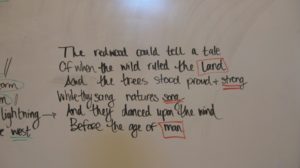 The redwood could tell a tale
Of when the wild ruled the Land
And the trees stood proud + strong
While they sang natures song
lightning → And they danced upon the wind
west Before the age of man